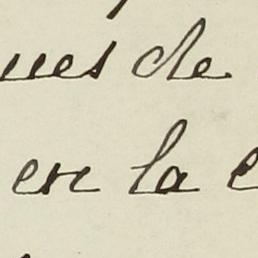 ues de
en la